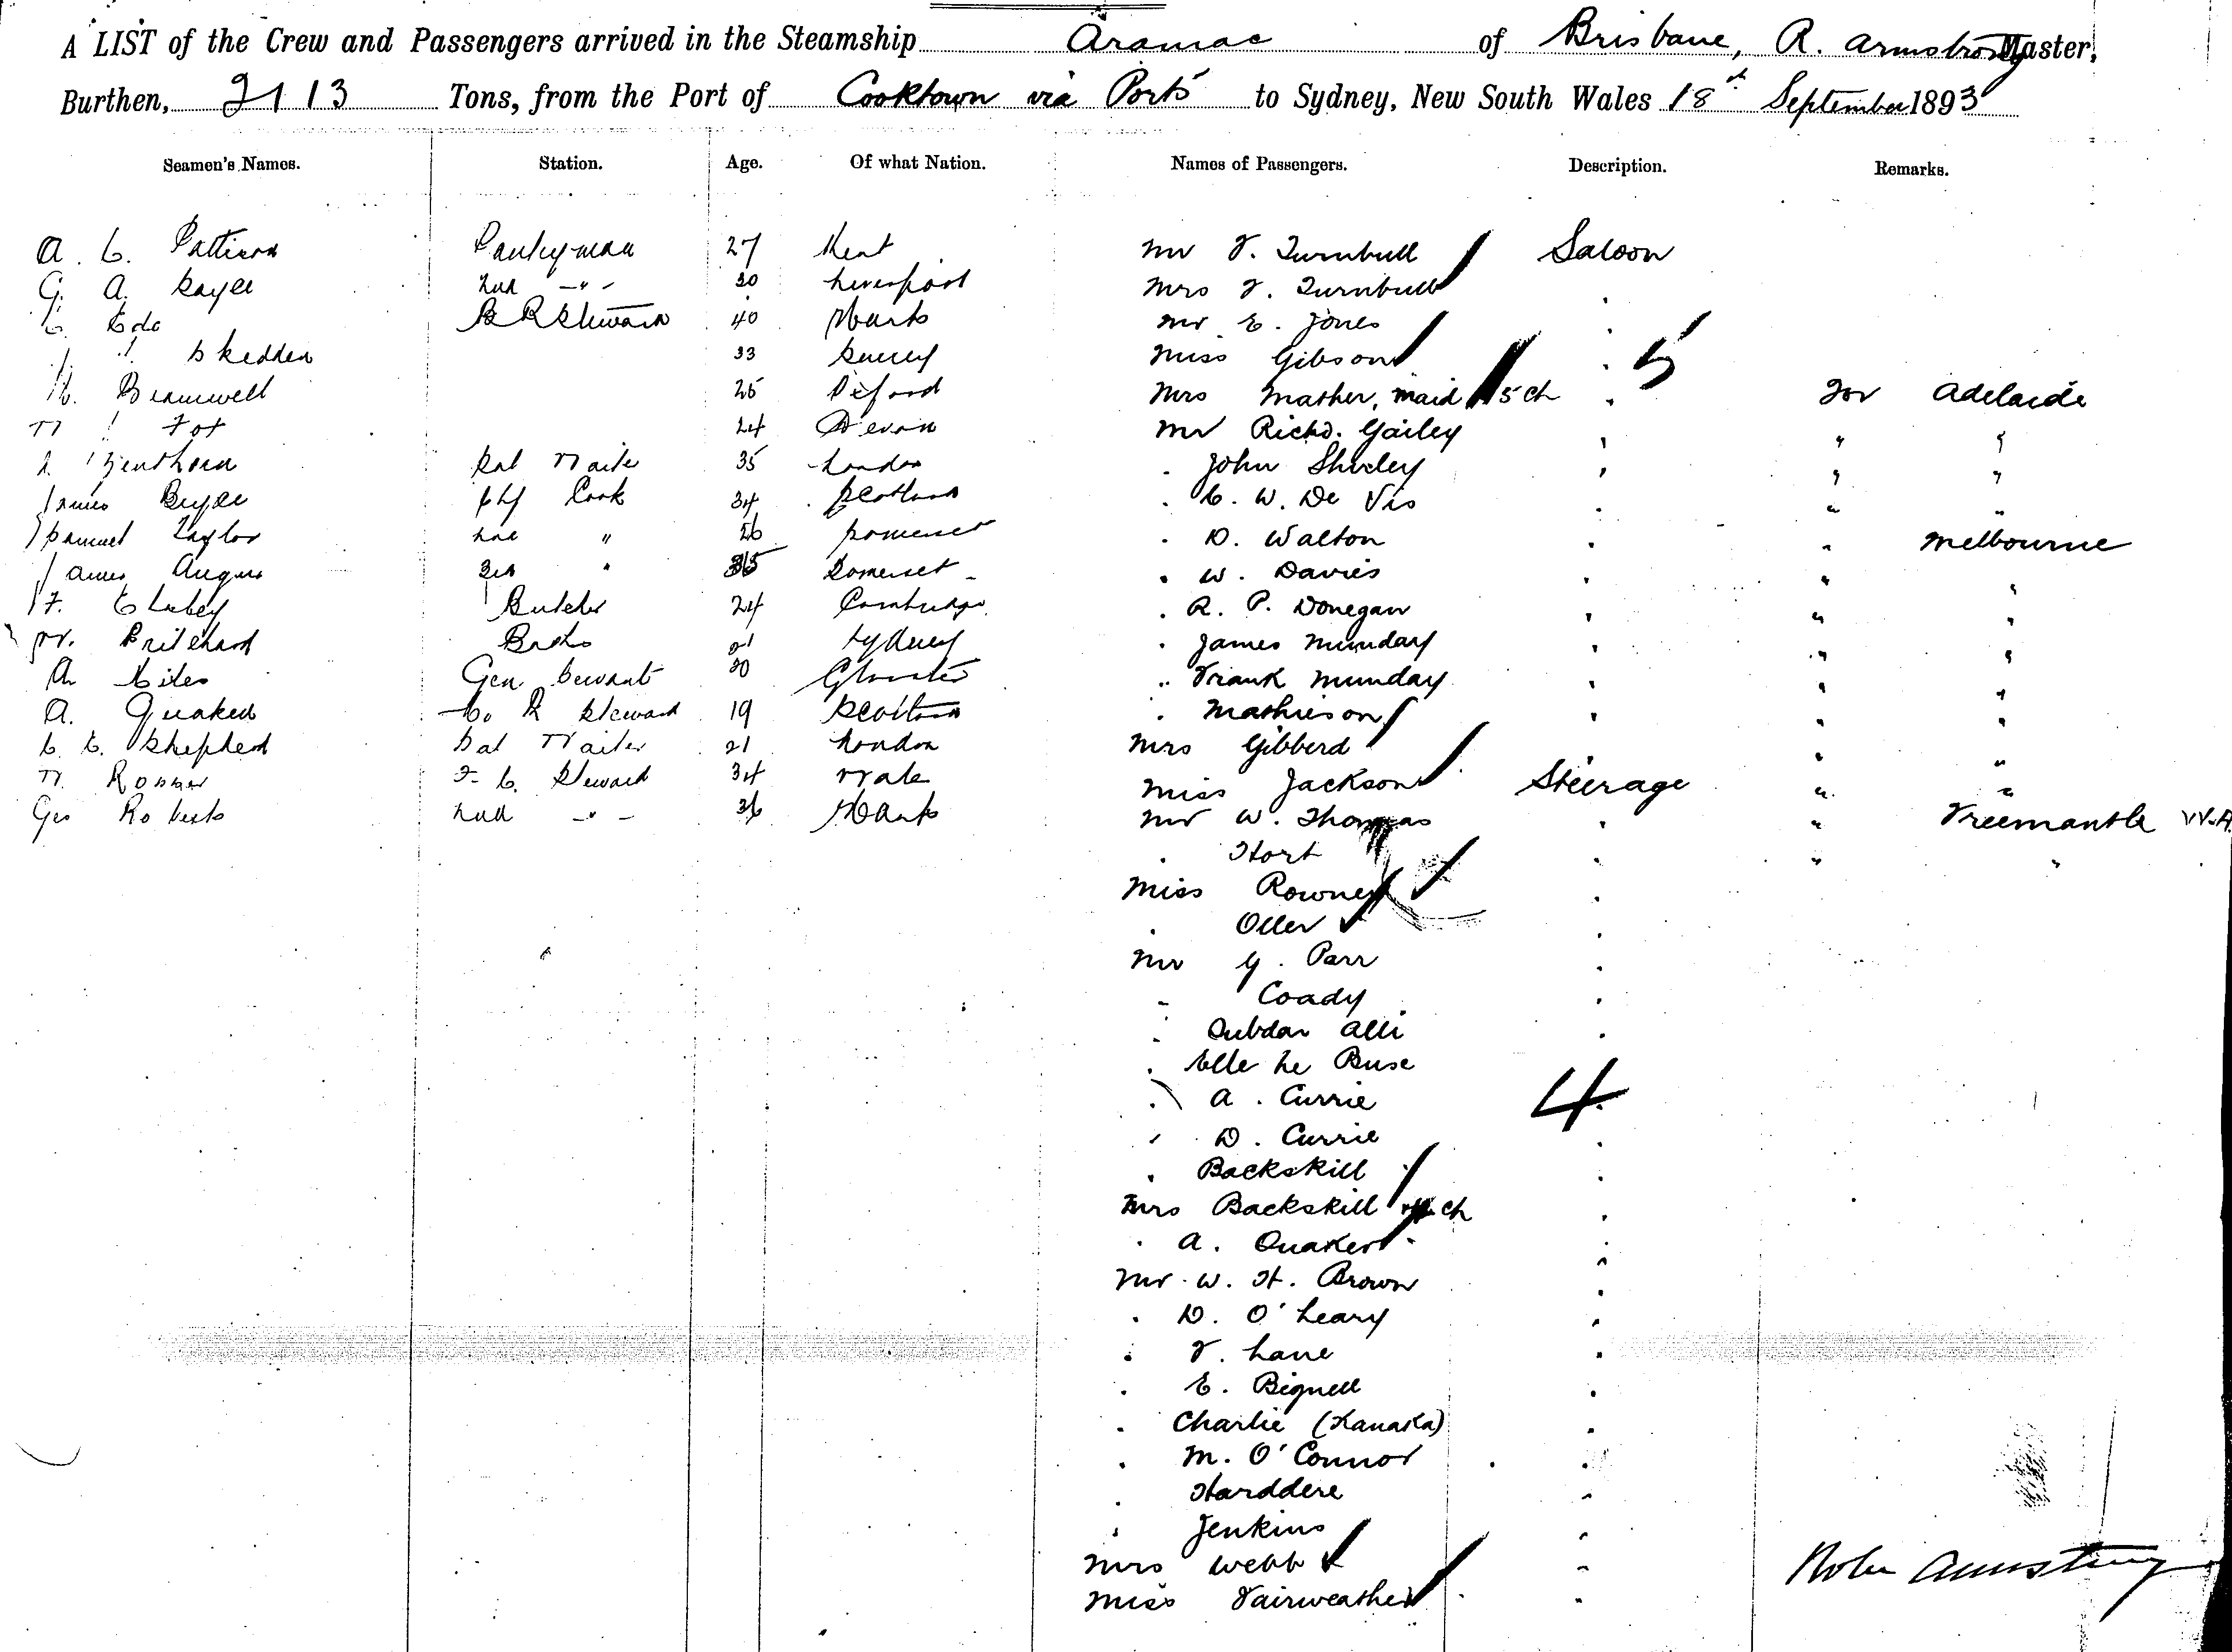 A LIST of the Crew and Passengers arrived in the Steamship Aramac of Brisbane, R. Armstrong Master,
Burthen, 2113 Tons, from the Port of Cooktown via Ports to Sydney, New South Wales 18th September 1893
Seamen's Names. Station. Age. Of what Nation. Names of Passengers. Description. Remarks.
A. C. Pattison Pantryman 27 Kent Mr F. Turnbull Saloon
G. A. 2nd -"- 20 Liverpool Mrs F. Turnbull
40 Hants Mr E. Jones
Skedden 33 Surrey Miss Gibson 5
Bramwell 25 Oxford Mrs Mather, maid 5 ch for Adelaide
Fox 24 Devon Mr Richd. Gailey " "
Sal Waiter 35 London John " "
James Chf Cook 34 Scotland C. W. De Vis " "
Samuel Taylor 2nd " 26 Somerset D. Walton " Melbourne
James Angus 3rd " 35 Somerset W. Davies " "
F. Butcher 24 Cambridge R. P. Donegan " "
W. Pritchard Baker 21 Sydney James Munday " "
A. Giles Gen Servant 20 Frank Munday " "
A. Quaked Steward 19 Scotland Mathieson " "
C. C. Shepherd Sal Waiter 21 London Mrs Gibberd " "
W. F. C. Steward 34 Wales Miss Jackson Steerage " "
Geo Roberts 2nd -"- 36 Hants Mr W. Thomas " Freemantle W.A.
Hort " "
Miss Rowney
Oller
Mr G. Parr
Coady
Alli
Le Buse
A. Currie 4
D. Currie
Backskill
Mrs Backskill ch
A. Quaker
Mr W. H. Brown
D. O'Leary
F. Lane
E. Bignell
Charlie (Kanaka)
M. O'Connor
Harddere
Jenkins
Mrs Webb
Miss Fairweather
Armstrong